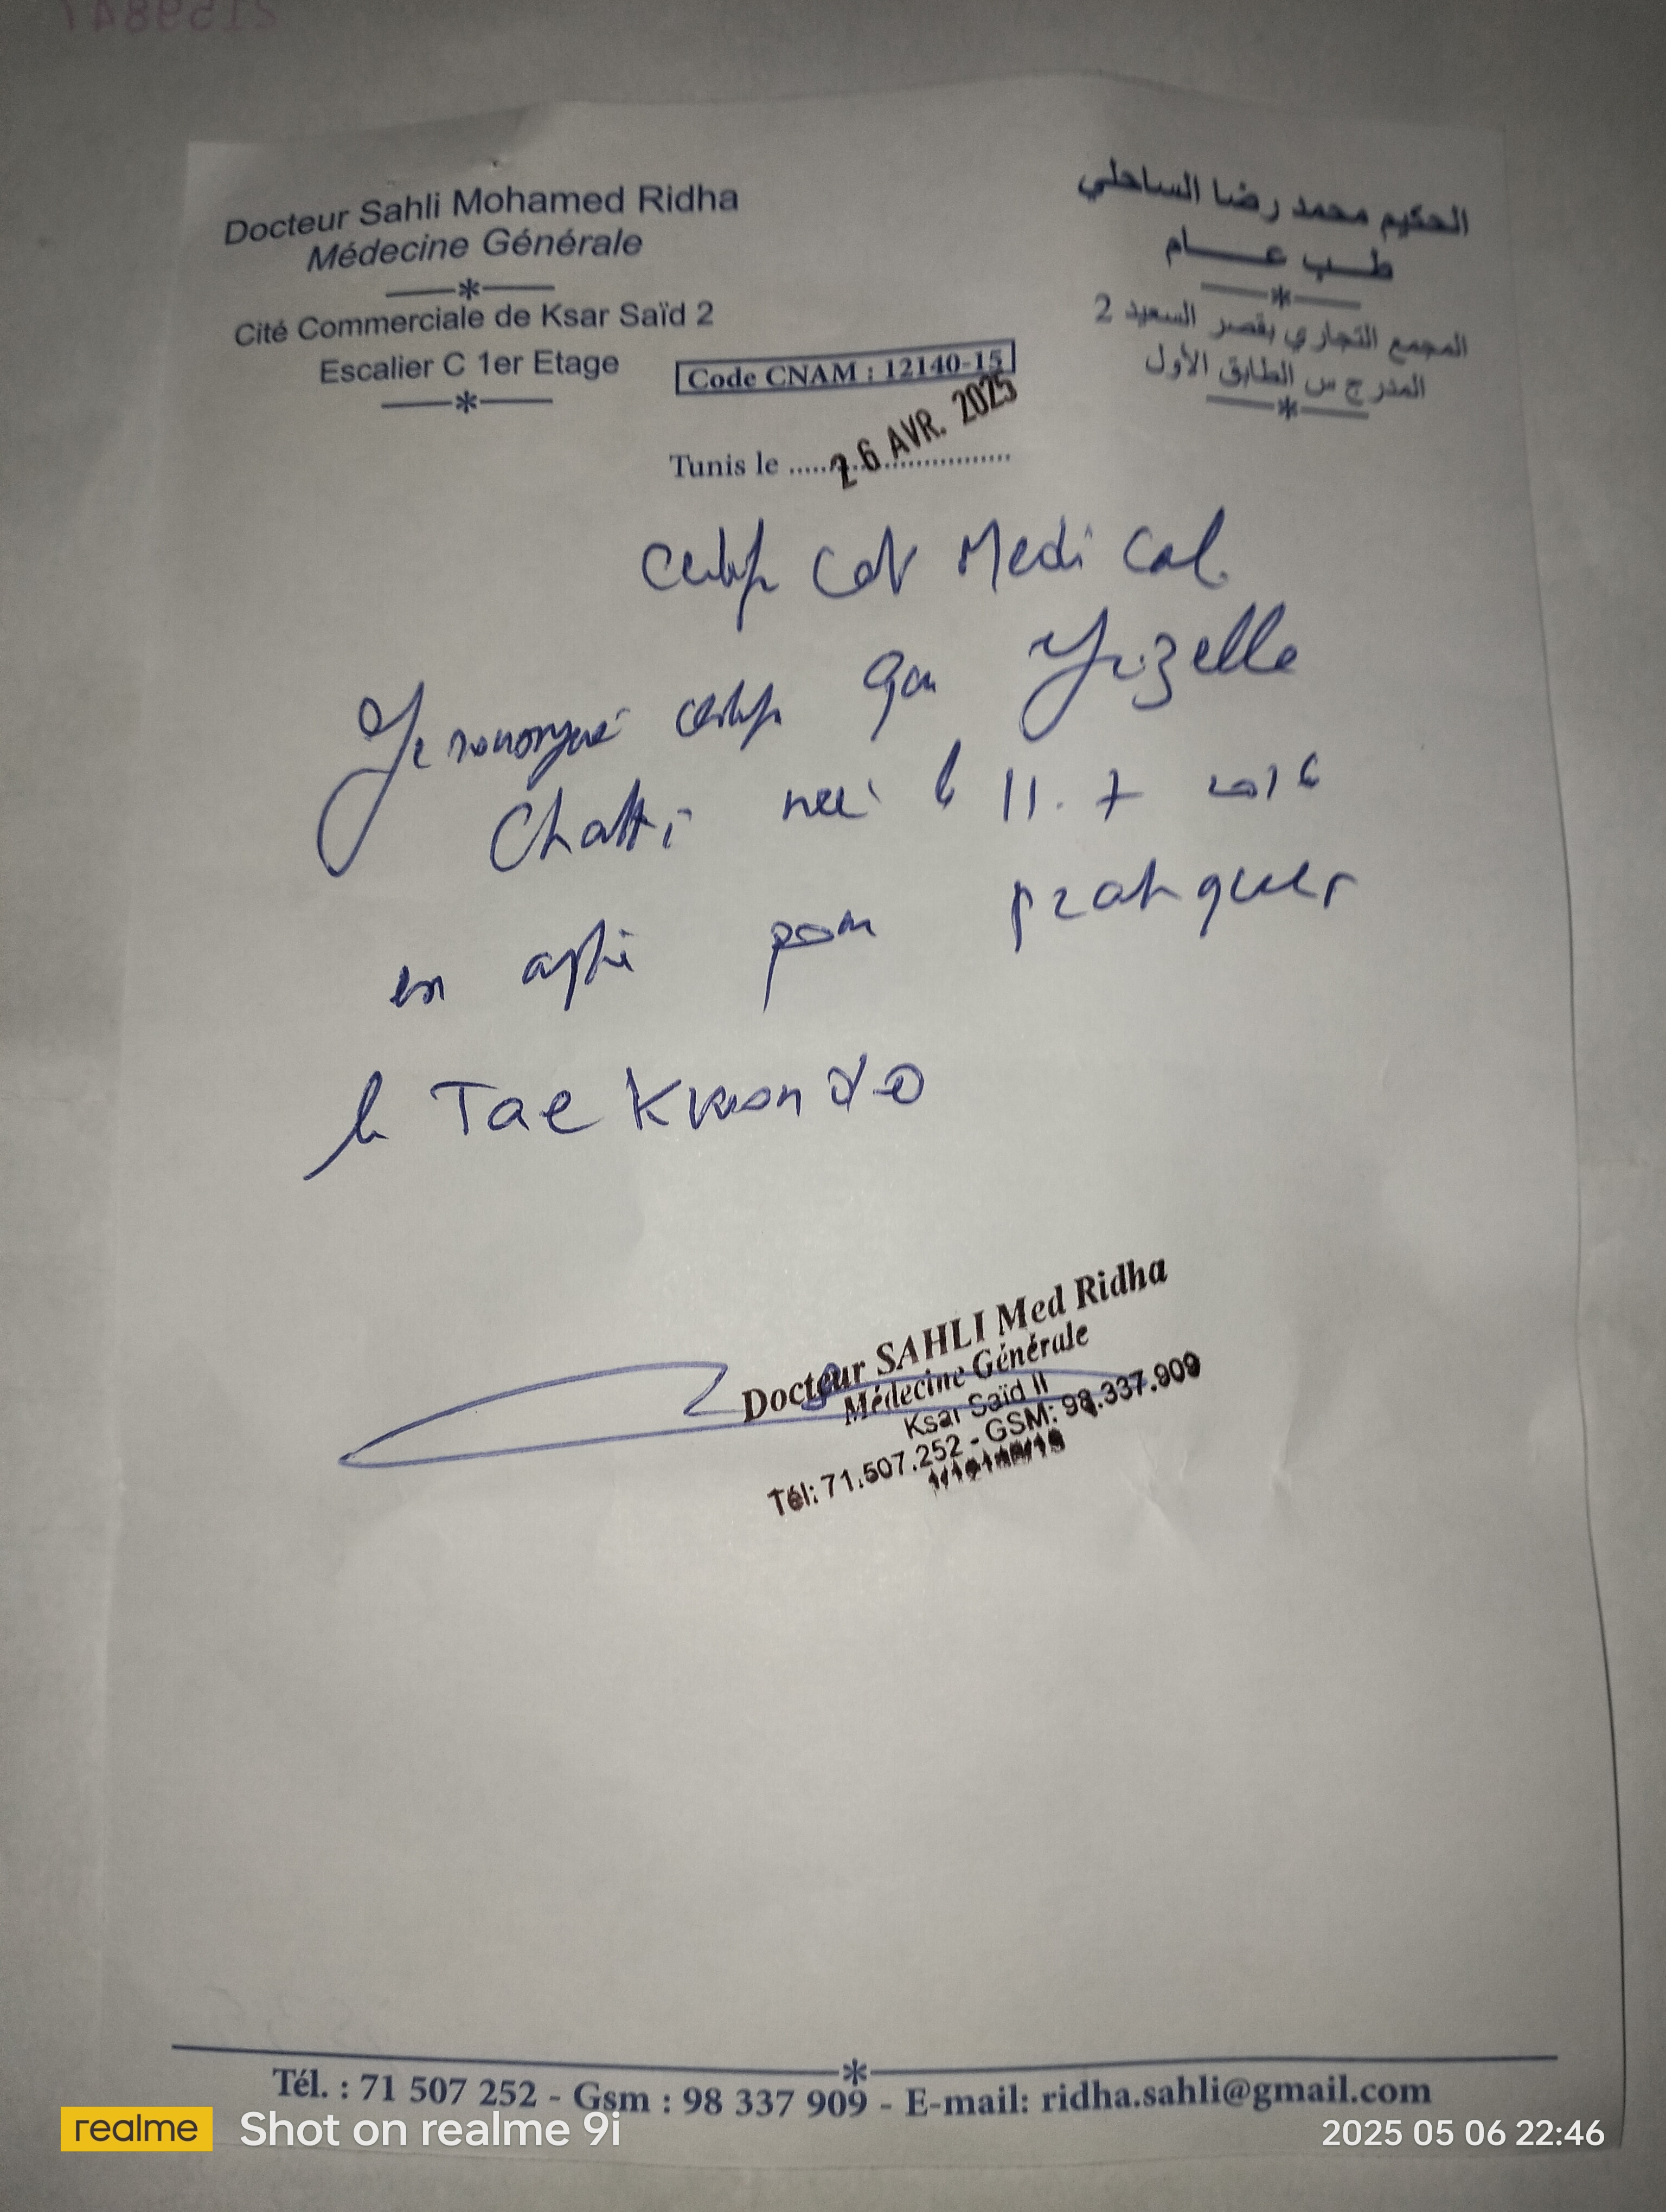 Docteur Sahli Mohamed Ridha
Médecine Générale
Cité Commerciale de Ksar Saïd 2
Escalier C 1er Etage
الحكيم محمد رضا الساحلي
طب عام
المجمع التجاري بقصر السعيد 2
المدرج س الطابق الأول
Code CNAM : 12140-15
Tunis le 26 AVR. 2025
Certificat Medical
Je soussigné certifie que
Chatti née le 11.7 2016
est apte pour pratiquer
le TaeKwondo
Docteur SAHLI Med Ridha
Médecine Générale
Ksar Saïd II
Tél: 71.507.252 - GSM: 98.337.909
Tél. : 71 507 252 - Gsm : 98 337 909 - E-mail: ridha.sahli@gmail.com
realme Shot on realme 9i
2025 05 06 22:46